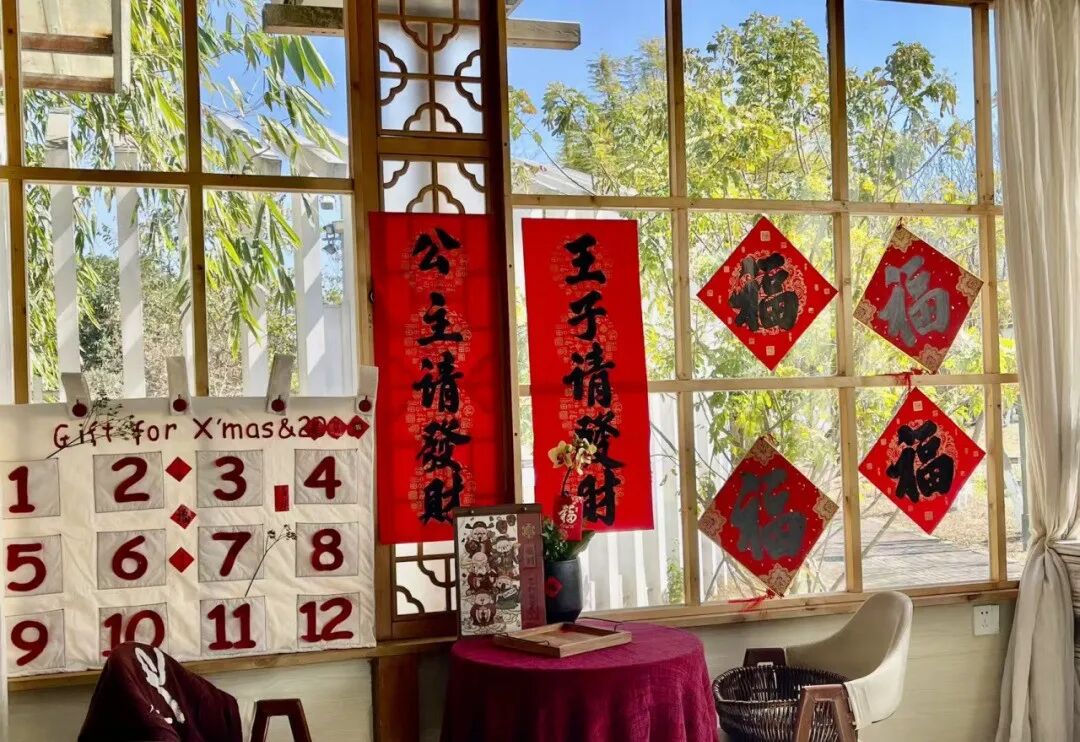 Gift for X'mas&20
1
2
3
4
5
6
7
8
9
10
11
12
公主请發财
王子请發财
福
福
福
福
福